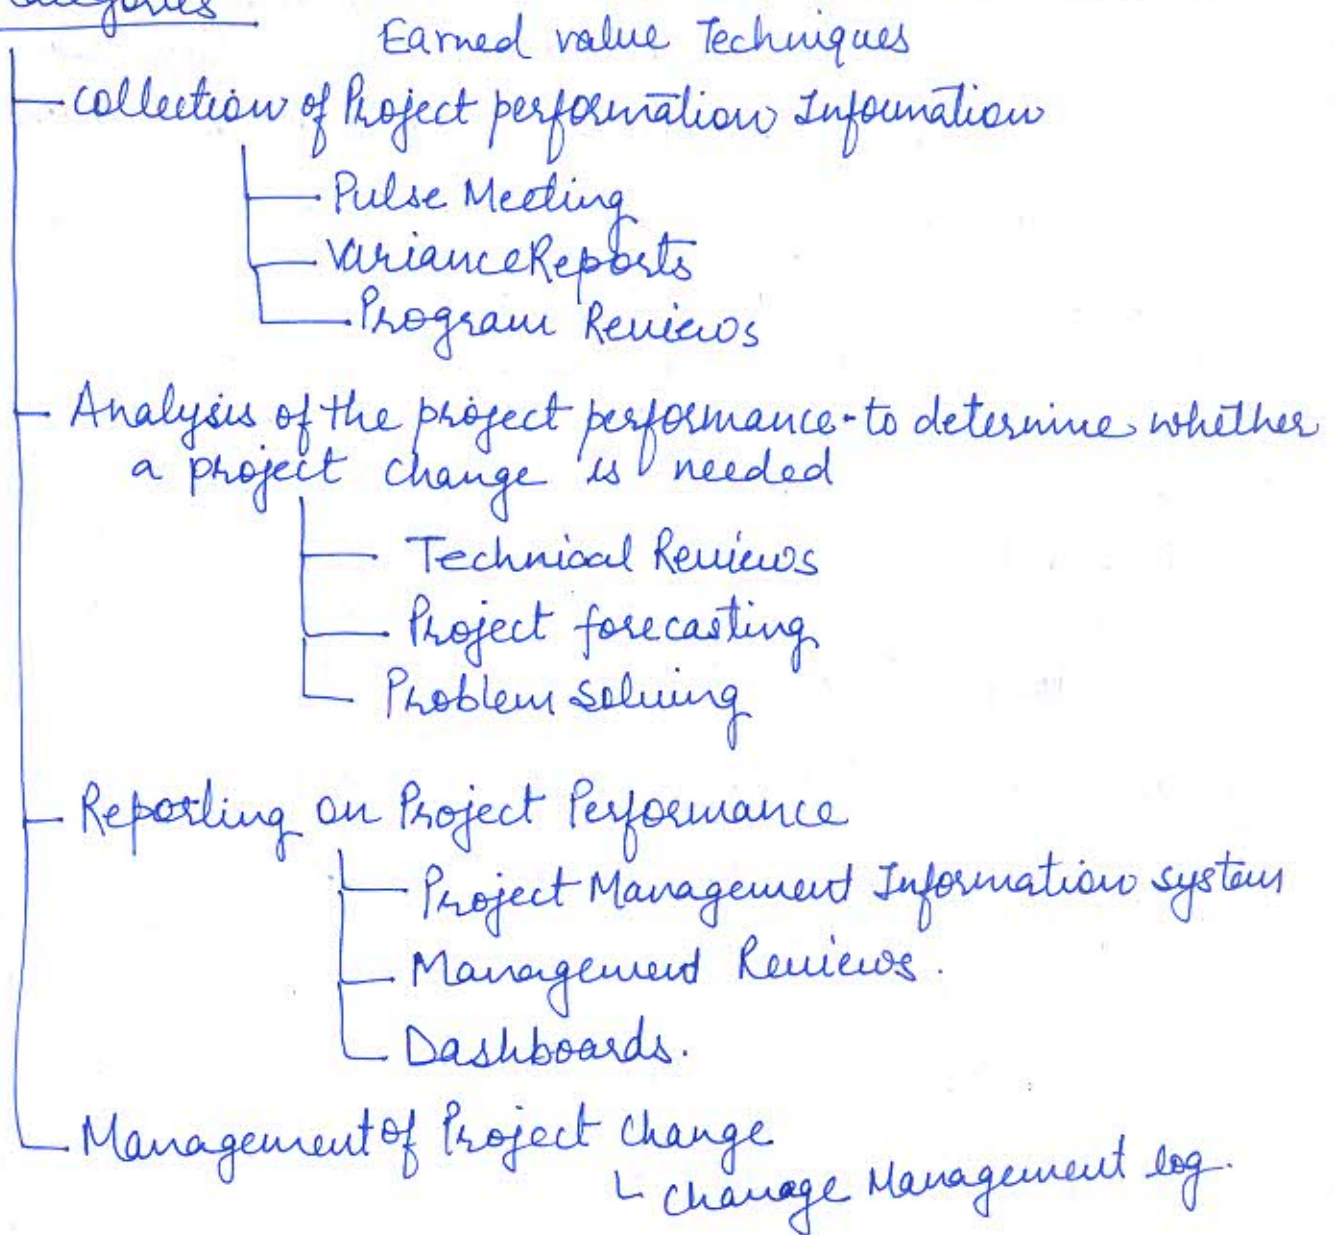 Categories
Earned value Techniques
collection of Project performation Information
Pulse Meeting
Variance Reports
Program Reviews
Analysis of the project performance - to determine whether
a project change is needed
Technical Reviews
Project forecasting
Problem Solving
Reporting on Project Performance
Project Management Information system
Management Reviews.
Dashboards.
Management of Project Change
Chanage Management log.